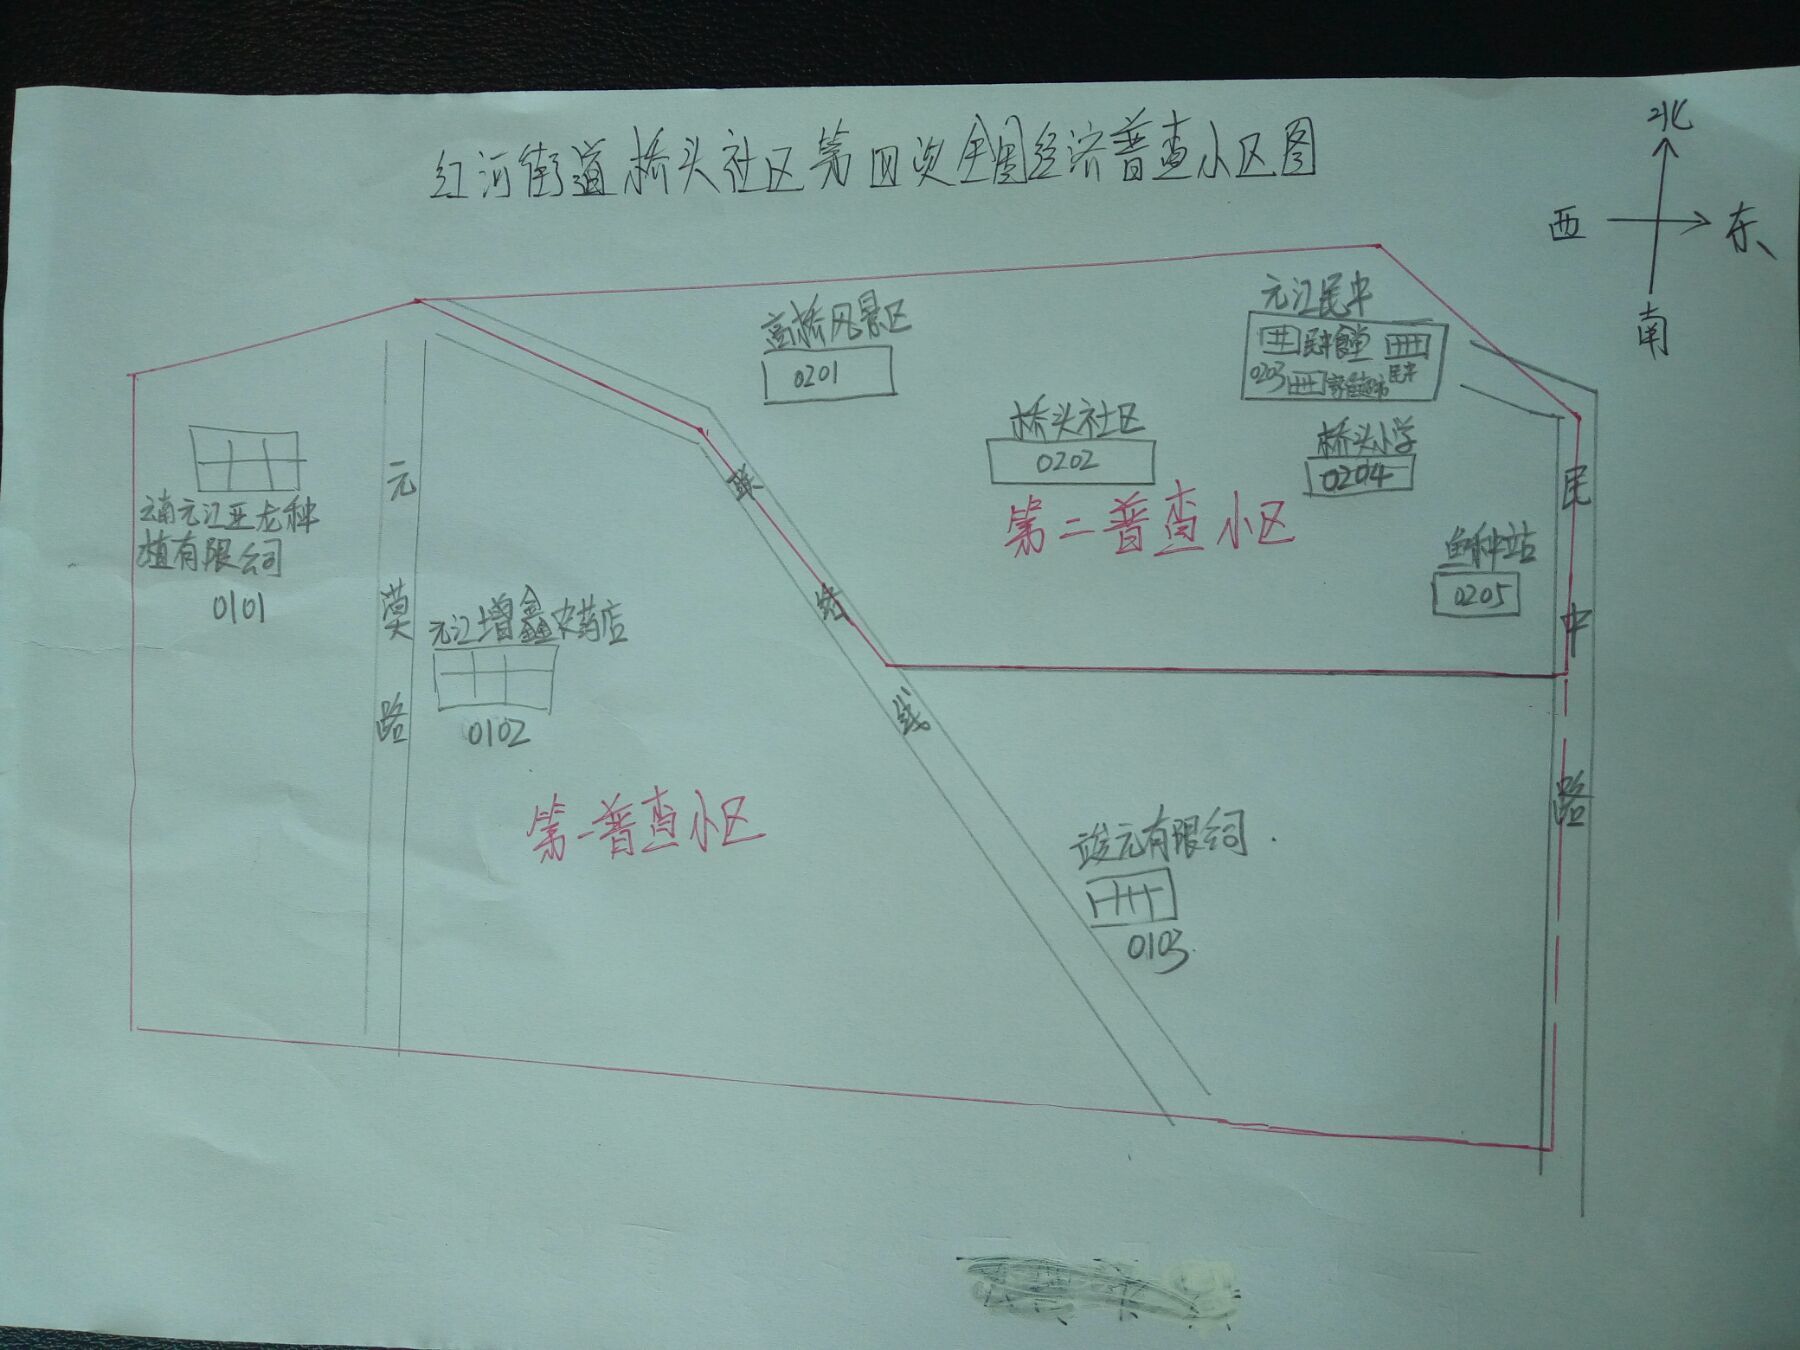 红河街道桥头社区第四次全国经济普查小区图
北
西
东
南
元江民中
高桥风景区
0201
民中食堂
0203
民中
桥头社区
0202
桥头小学
0204
第二普查小区
鱼种站
0205
云南元江亚龙种
植有限公司
0101
元漠路
元江增鑫农药店
0102
民中路
第一普查小区
竣元有限公司
0103